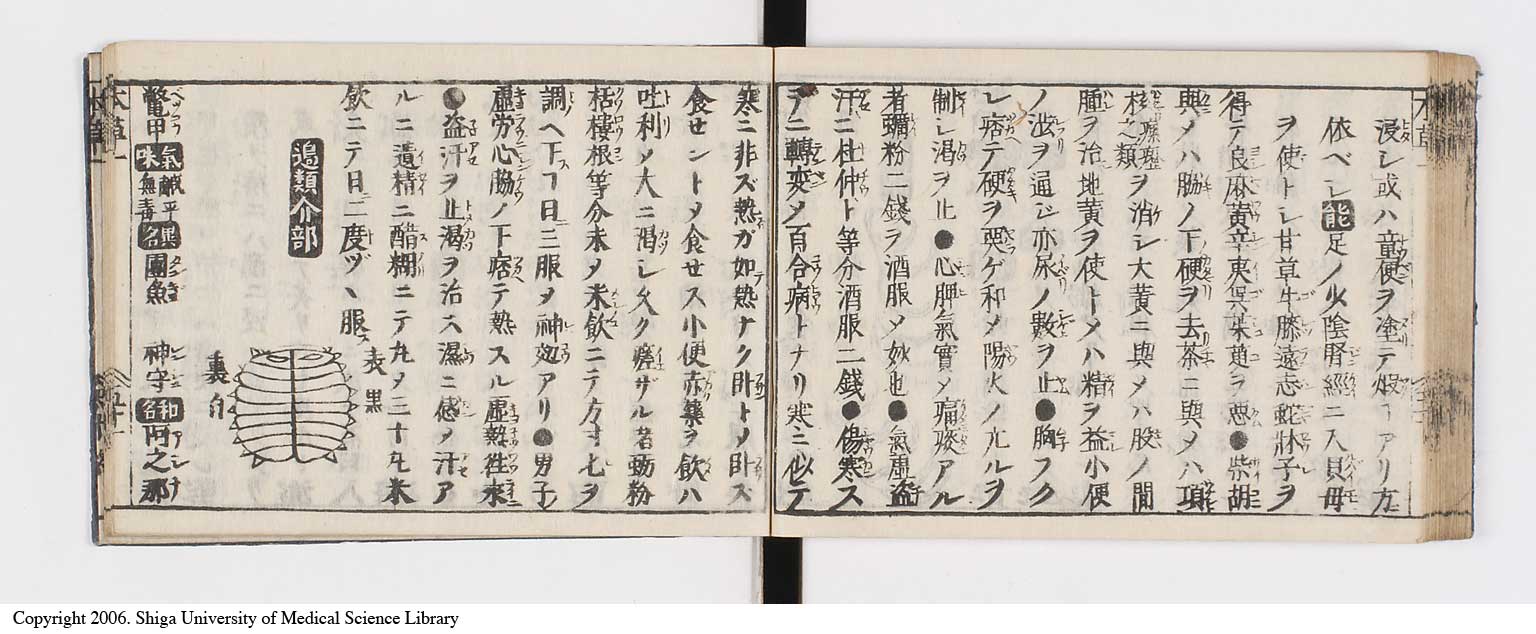 浸シ或ハ童便ヲ塗テ煆コアリ方
依ベシ能足ノ少陰腎經ニ入貝母
ヲ使トシ甘草牛膝遠志蛇牀子ヲ
得テ良麻黄辛夷呉茱萸ヲ悪●柴胡
與メハ脇ノ下硬ヲ去茶ニ與メハ項
核瘰癧之類ヲ消シ大黄ニ與メハ股ノ間
腫ヲ治地黄ヲ使トメハ精ヲ益小便
ノ澁ヲ通シ亦尿ノ數ヲ止●胸フク
レ痞テ硬ヲ耎ゲ和メ陽火ノ亢ルヲ
制シ渇ヲ止●心脾氣實メ痛痰アル
者蠣粉二錢ヲ酒服メ妙也●氣虚盗
汗ニ杜仲ト等分酒服二錢●傷寒ス
デニ轉変メ百合病トナリ寒ニ似テ
寒ニ非ズ熱ガ如熱ナク臥トメ臥ス
食セントメ食セス小便赤藥ヲ飲ハ
吐利メ大ニ渇シ久ク瘥ザル者
栝樓根等分末メ米飲ニテ方寸七ヲ
調ヘ下コ日三服メ神効アリ●男子
虚労心脇ノ下痞テ熱スル虚熱往来
●盗汗ヲ止渇ヲ治ス濕ニ感メ汗ア
ルニ遺精ニ醋糊ニテ丸メ三十丸米
飲ニテ日二度ヅヽ服ス
表黒
裏白
類介部
鼈甲氣味鹹平無毒異名團魚
神守和名阿之那
Copyright 2006. Shiga University of Medical Science Library